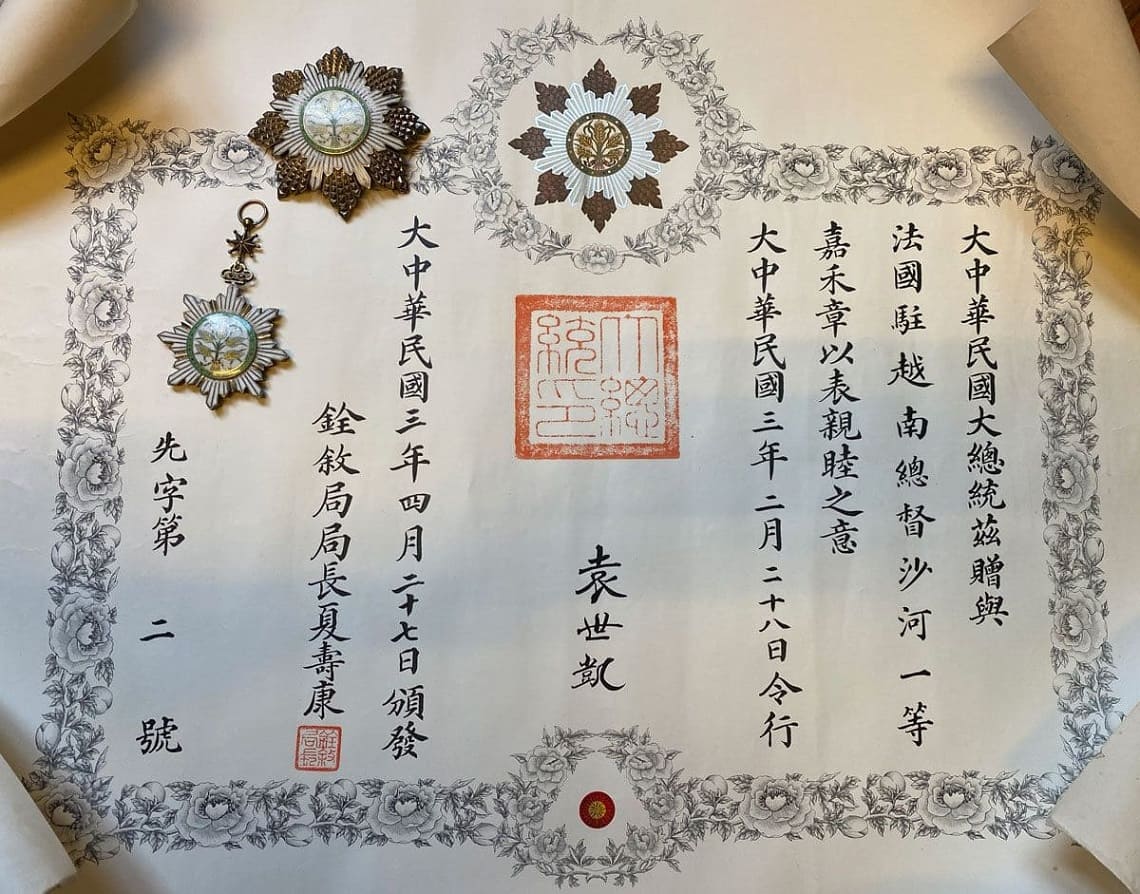 大中華民國大總統茲贈與
法國駐越南總督沙河一等
嘉禾章以表親睦之意
大中華民國三年二月二十八日令行
大總統印
袁世凱
大中華民國三年四月二十七日頒發
銓敘局局長夏壽康
銓敘局長
先字第二號